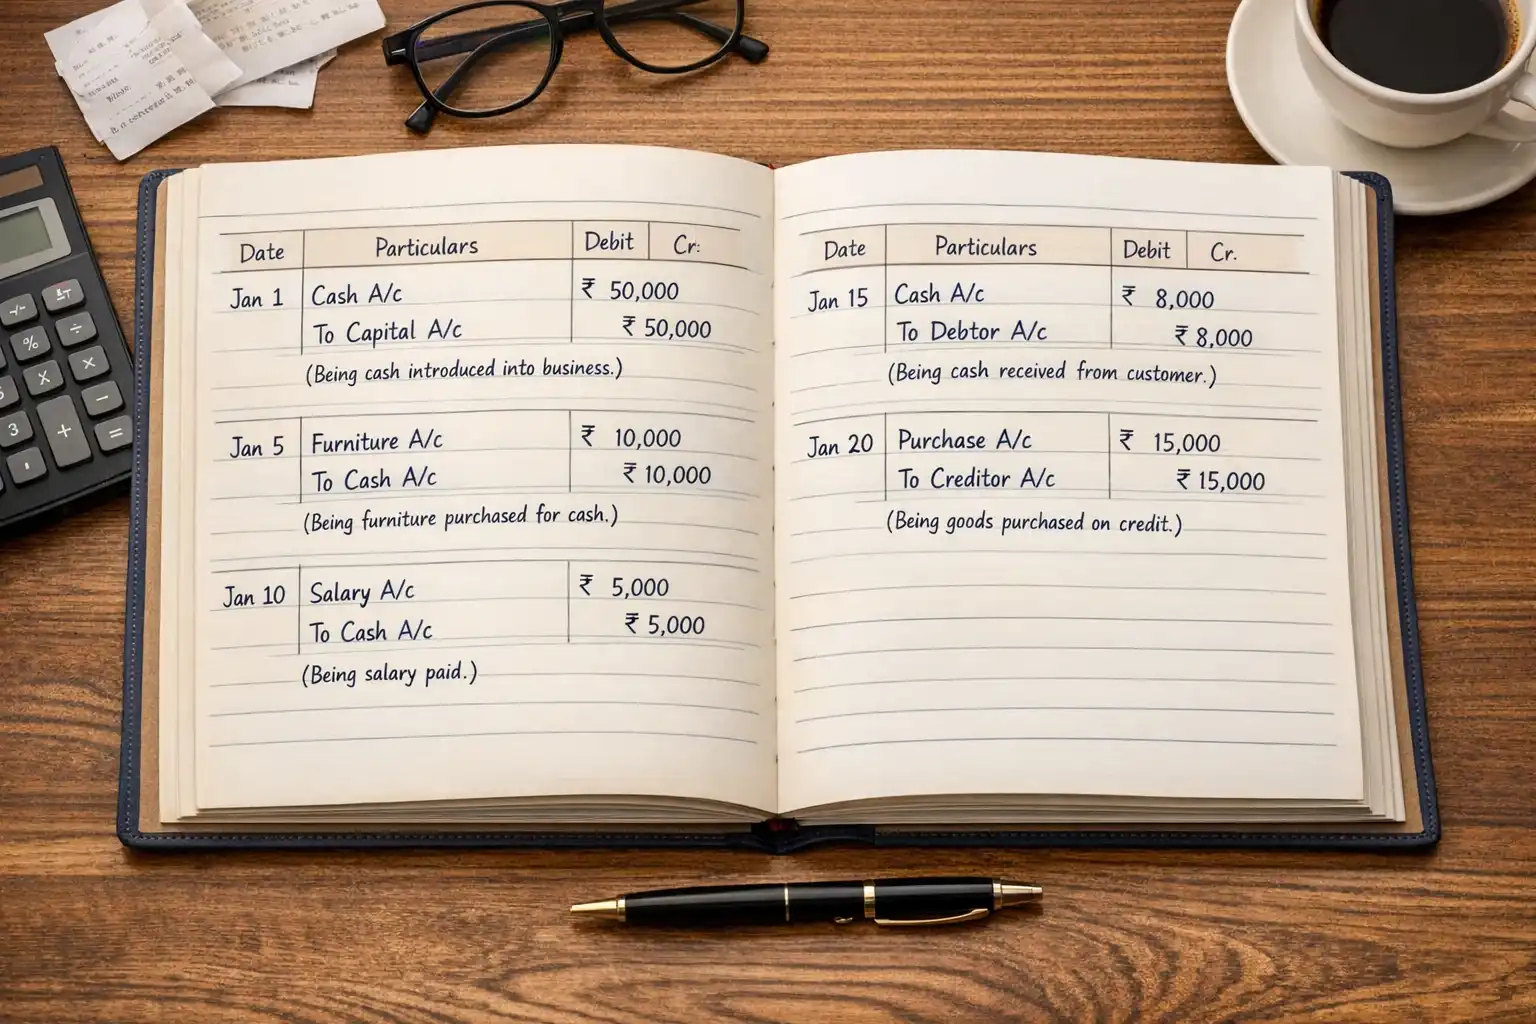 Date Particulars Debit Cr:
Jan 1 Cash A/c ₹ 50,000
To Capital A/c ₹ 50,000
(Being cash introduced into business.)
Jan 5 Furniture A/c ₹ 10,000
To Cash A/c ₹ 10,000
(Being furniture purchased for cash.)
Jan 10 Salary A/c ₹ 5,000
To Cash A/c ₹ 5,000
(Being salary paid.)
Date Particulars Debit Cr.
Jan 15 Cash A/c ₹ 8,000
To Debtor A/c ₹ 8,000
(Being cash received from customer.)
Jan 20 Purchase A/c ₹ 15,000
To Creditor A/c ₹ 15,000
(Being goods purchased on credit.)
% ÷
X X −
3 + =